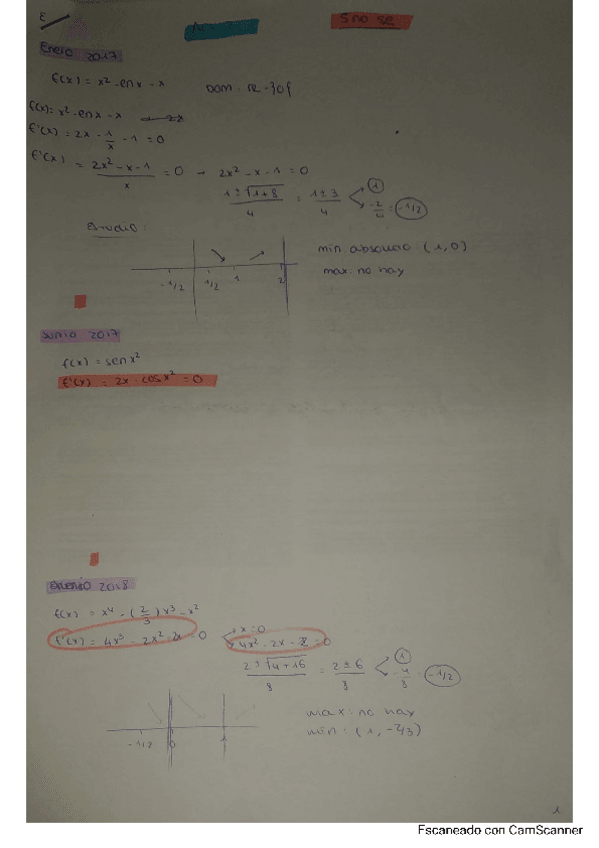 E
5 no se
Enero 2017
f(x) = x² - enx - x
Dom: R - {0}
f(x) = x² - enx - x
f'(x) = 2x - 1/x - 1 = 0
f'(x) = 2x² - x - 1 / x = 0 → 2x² - x - 1 = 0
1 ± √1+8 / 4 = 1 ± 3 / 4 < 1
-2/4 = -1/2
Estudio:
min. absoluto (1,0)
max: no hay
-1/2 1/2 1 2
Junio 2017
f(x) = sen x²
f'(x) = 2x · cos x² = 0
Enero 2018
f(x) = x⁴ - (2/3) x³ - x²
f'(x) = 4x³ - 2x² - 2x = 0 < x = 0
4x² - 2x - 2 = 0
2 ± √4+16 / 8 = 2 ± 6 / 8 < 1
-4/8 = -1/2
max: no hay
min: (1, -2/3)
-1/2 0 1
1
Escaneado con CamScanner